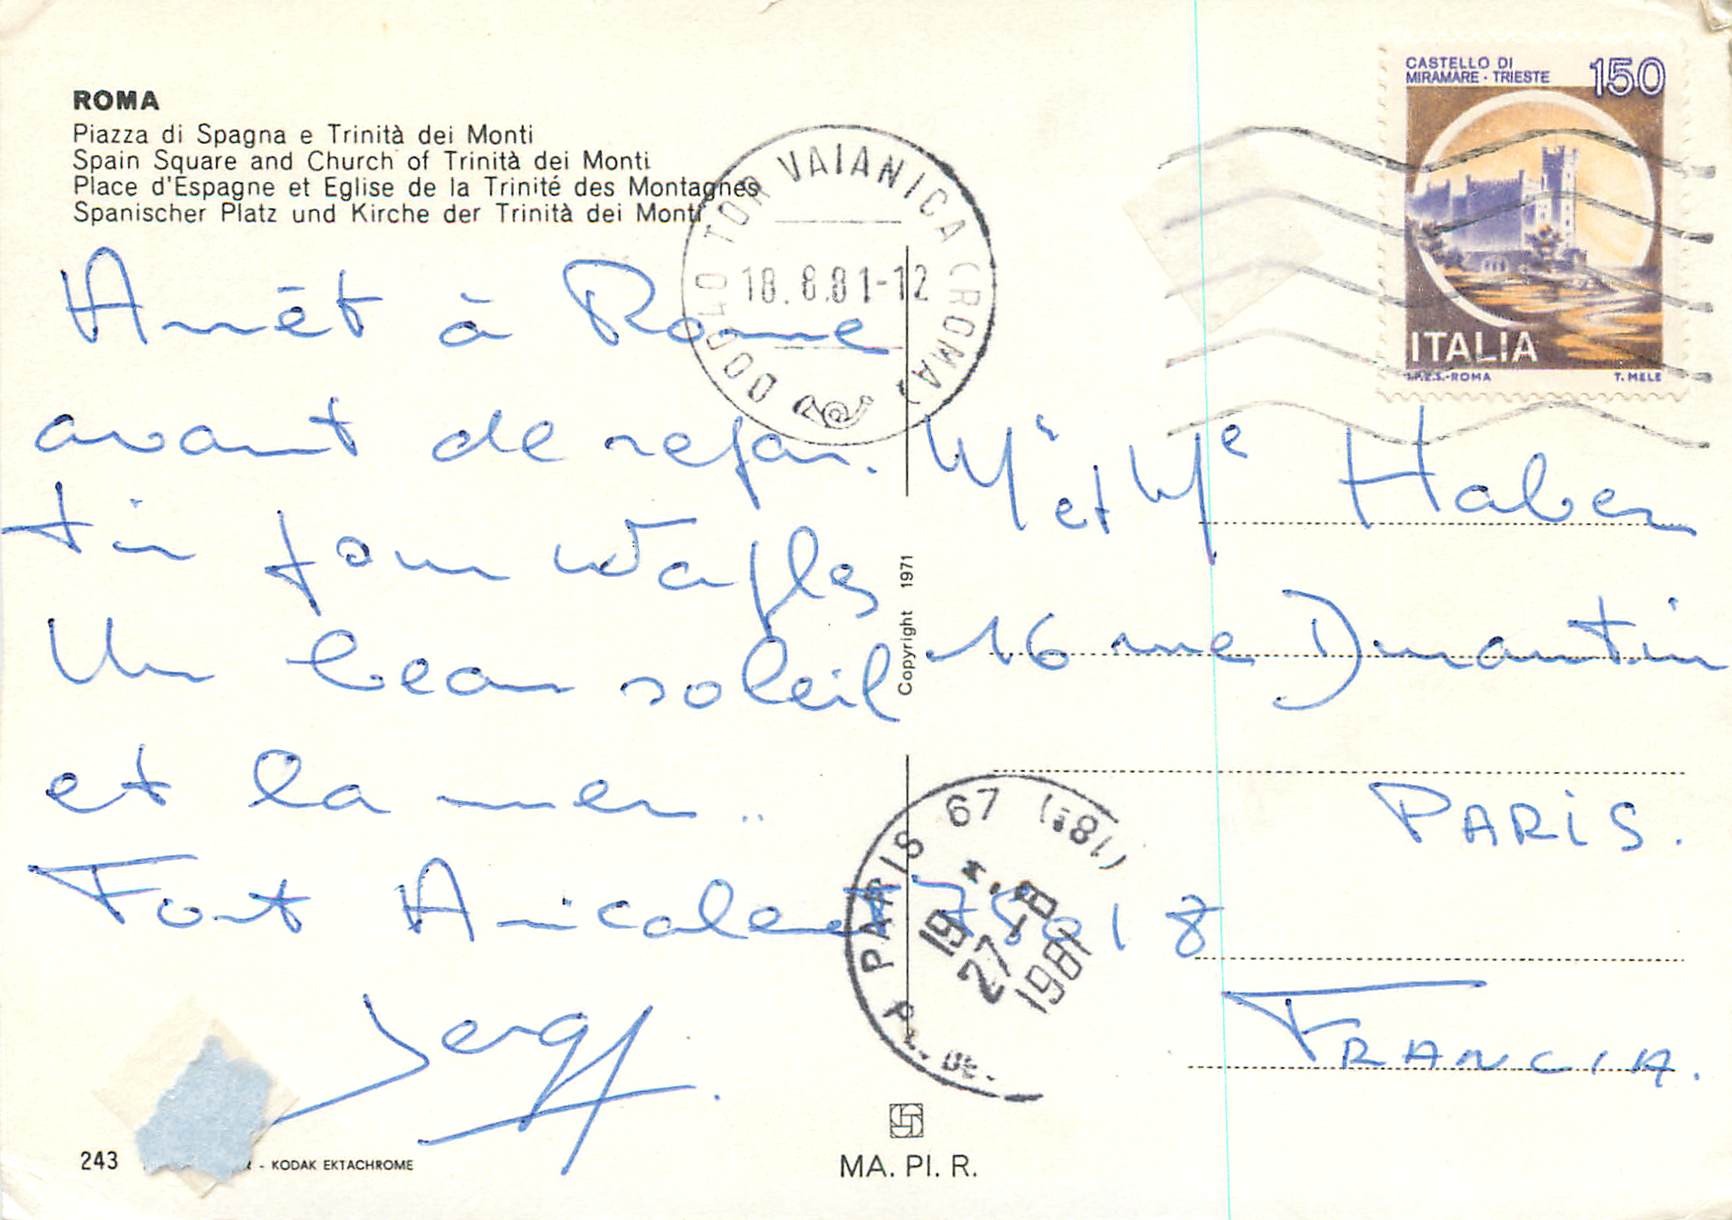 ROMA
Piazza di Spagna e Trinità dei Monti
Spain Square and Church of Trinità dei Monti
Place d'Espagne et Eglise de la Trinité des Montagnes
Spanischer Platz und Kirche der Trinità dei Monti
Arrêt à Rome
avant de repar.
tir pour Naples
Un beau soleil
et la mer..
Fort Amicalement
243
- KODAK EKTACHROME
00040 TOR VAIANICA (ROMA)
18.8.81-12
Copyright 1971
MA. PI. R.
CASTELLO DI
MIRAMARE - TRIESTE
150
ITALIA
I.P.Z.S.-ROMA T. MELE
Mr et Me Haber
16 rue Durantin
PARIS.
75018
FRANCIA.
PARIS 67 (18e)
19H
27-8
1981